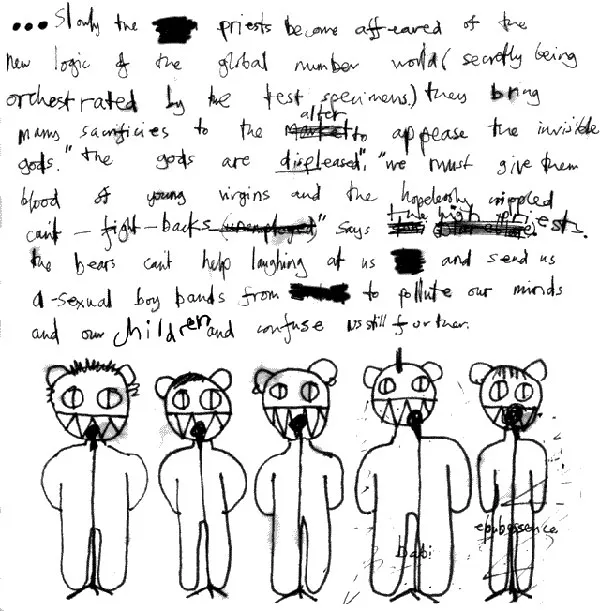 ...Slowly the priests become affeared of the
new logic of the global number world (secretly being
orchestrated by the test specimens.) they bring
many sacrificies to the alter to appease the invisible
gods." the gods are displeased", "we must give them
blood of young virgins and the hopelessly crippled
cant-fight-backs (unemployed)" says the high priests.
the bears can't help laughing at us and send us
a-sexual boy bands from to pollute our minds
and our children and confuse us still further.
babi
epubessence